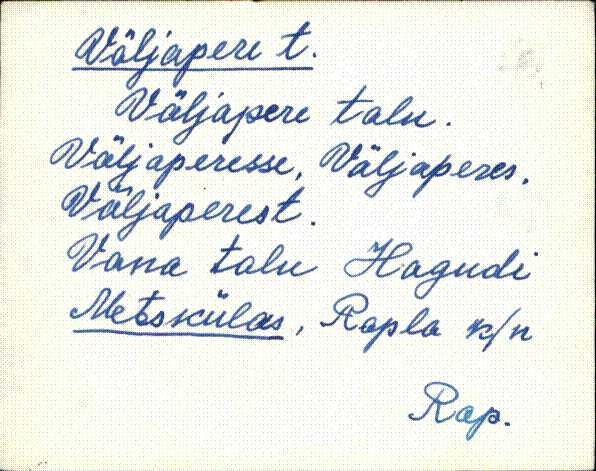 Väljapere t.
Väljapere talu.
Väljaperesse, Väljaperes,
Väljaperest.
Vana talu Hagudi
Metskülas, Rapla k/n
Rap.